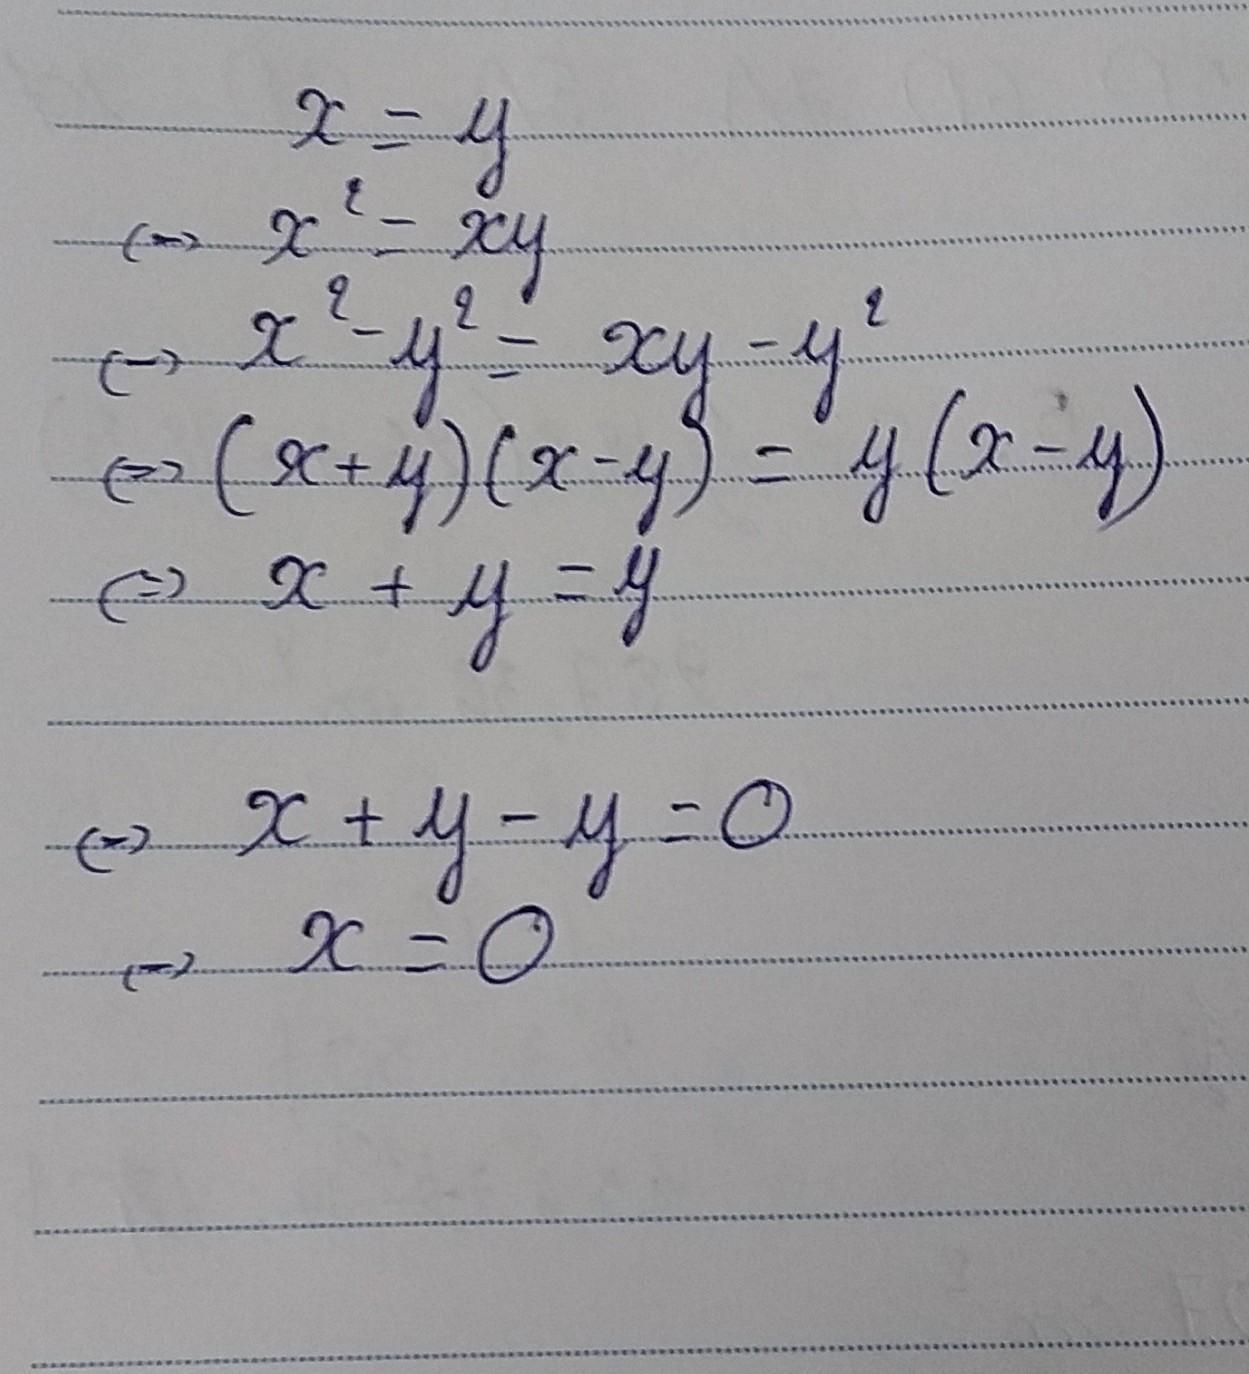 x = y
⇔ x² = xy
⇔ x² - y² = xy - y²
⇔ (x + y)(x - y) = y(x - y)
⇔ x + y = y
⇔ x + y - y = 0
⇔ x = 0